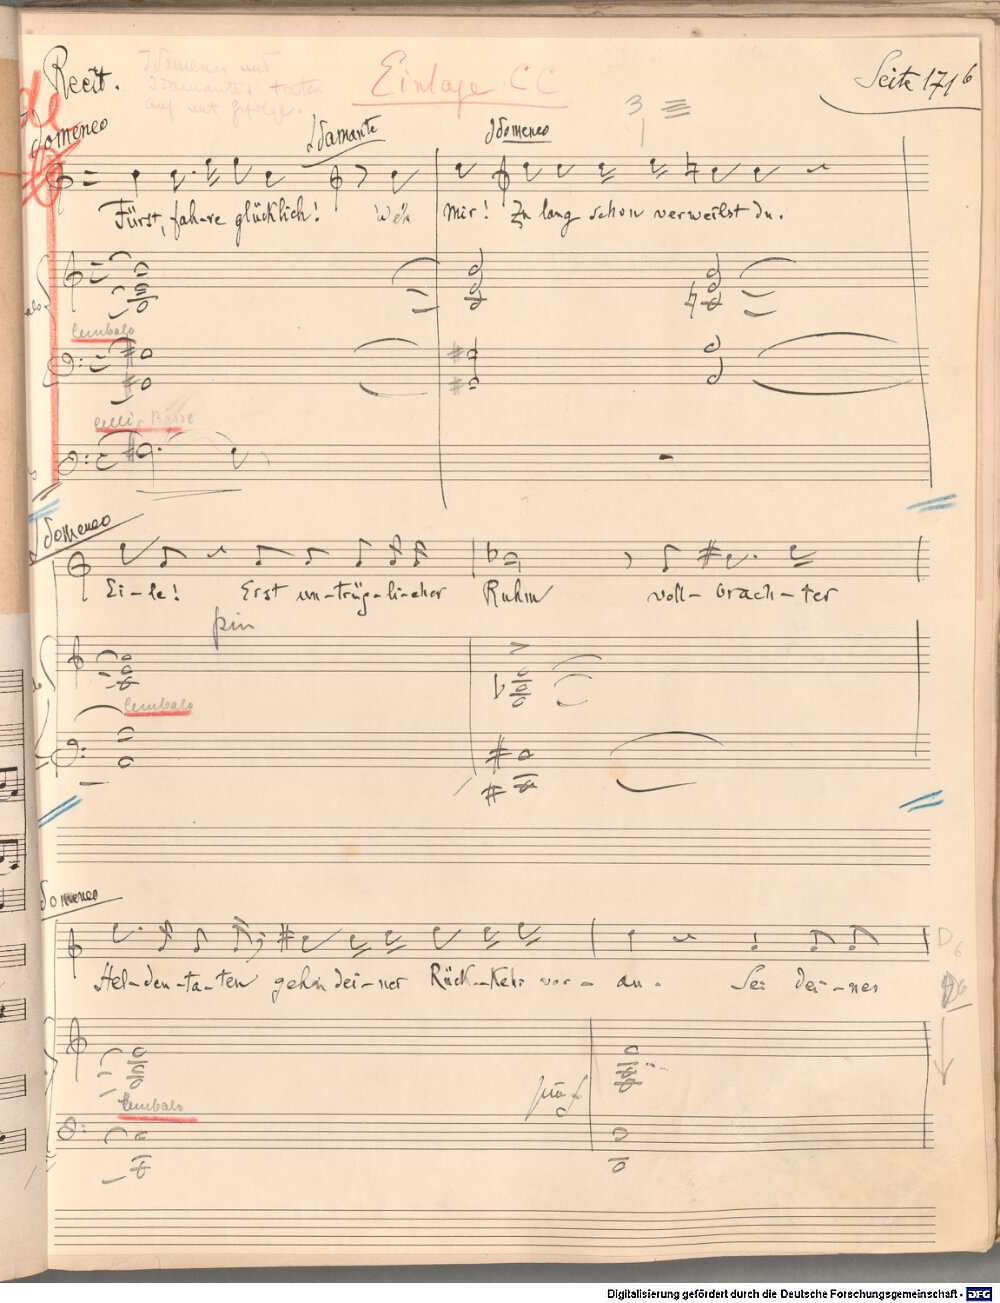 Recit.
Idomeneo und
Idamantes treten
auf mit Gefolge.
Einlage CC
Seite 171 b
Idomeneo
Idamante
Idomeneo
3
Fürst, fah-re glücklich! Weh mir! Zu lang schon verweilst du.
Cembalo
Celli-Bässe
Idomeneo
Ei-le! Erst un-trüg-li-cher Ruhm voll-brach-ter
più
Cembalo
Idomeneo
Hel-den-ta-ten geh'n dei-ner Rück-kehr vor-an. Sei dei-nes
D6
più f
Cembalo
Digitalisierung gefördert durch die Deutsche Forschungsgemeinschaft - DFG